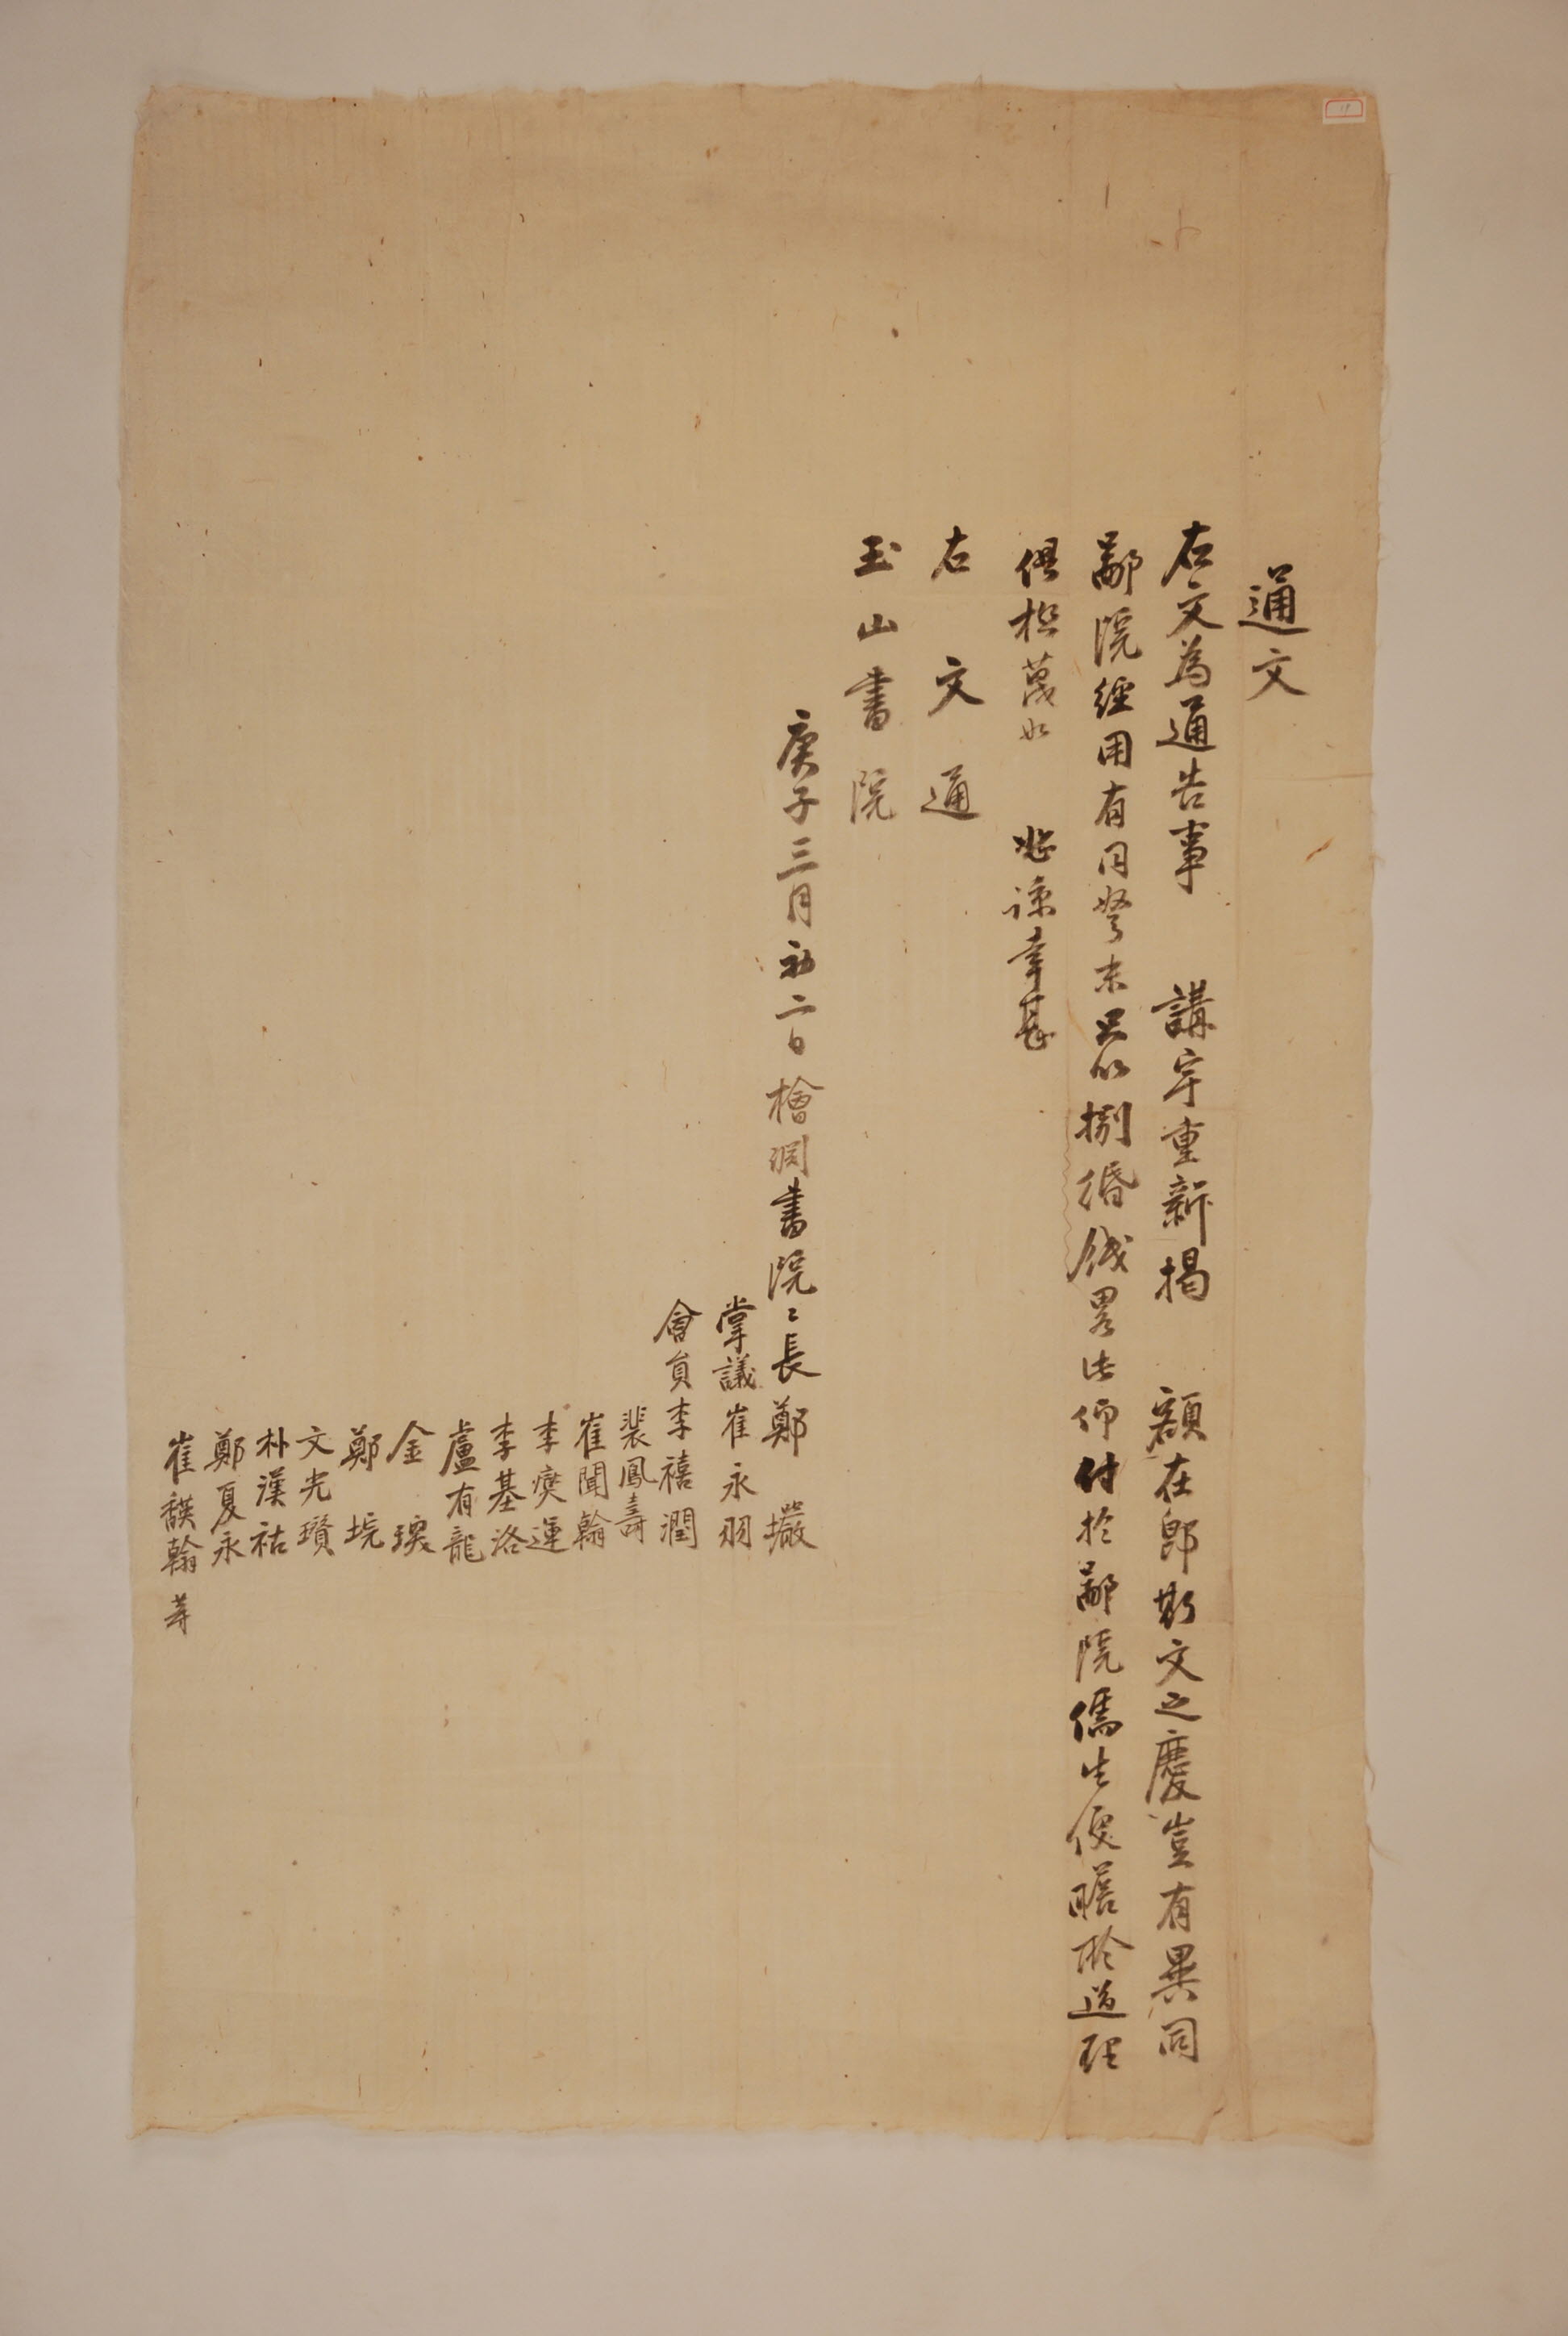 通文
右文爲通告事 講宇重新揭 額在卽斯文之慶豈有異同
鄙院經用有同弩末只以捌緡錢畧此仰付於鄙院儒生便瞻聆道理
俱極蔑如 恕諒幸甚
右文通
玉山書院
庚子三月初二日檜淵書院〻長鄭 巖
掌議崔永羽
會員李禧潤
裴鳳壽
崔聞翰
李奭運
李基洛
盧有龍
金 瑍
鄭 垸
文光瓚
朴漢祜
鄭夏永
崔翰等